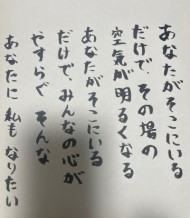 あなたがそこにいる
だけで、その場の
空気が明るくなる
あなたがそこにいる
だけで、みんなの心が
やすらぐ そんな
あなたに 私も なりたい